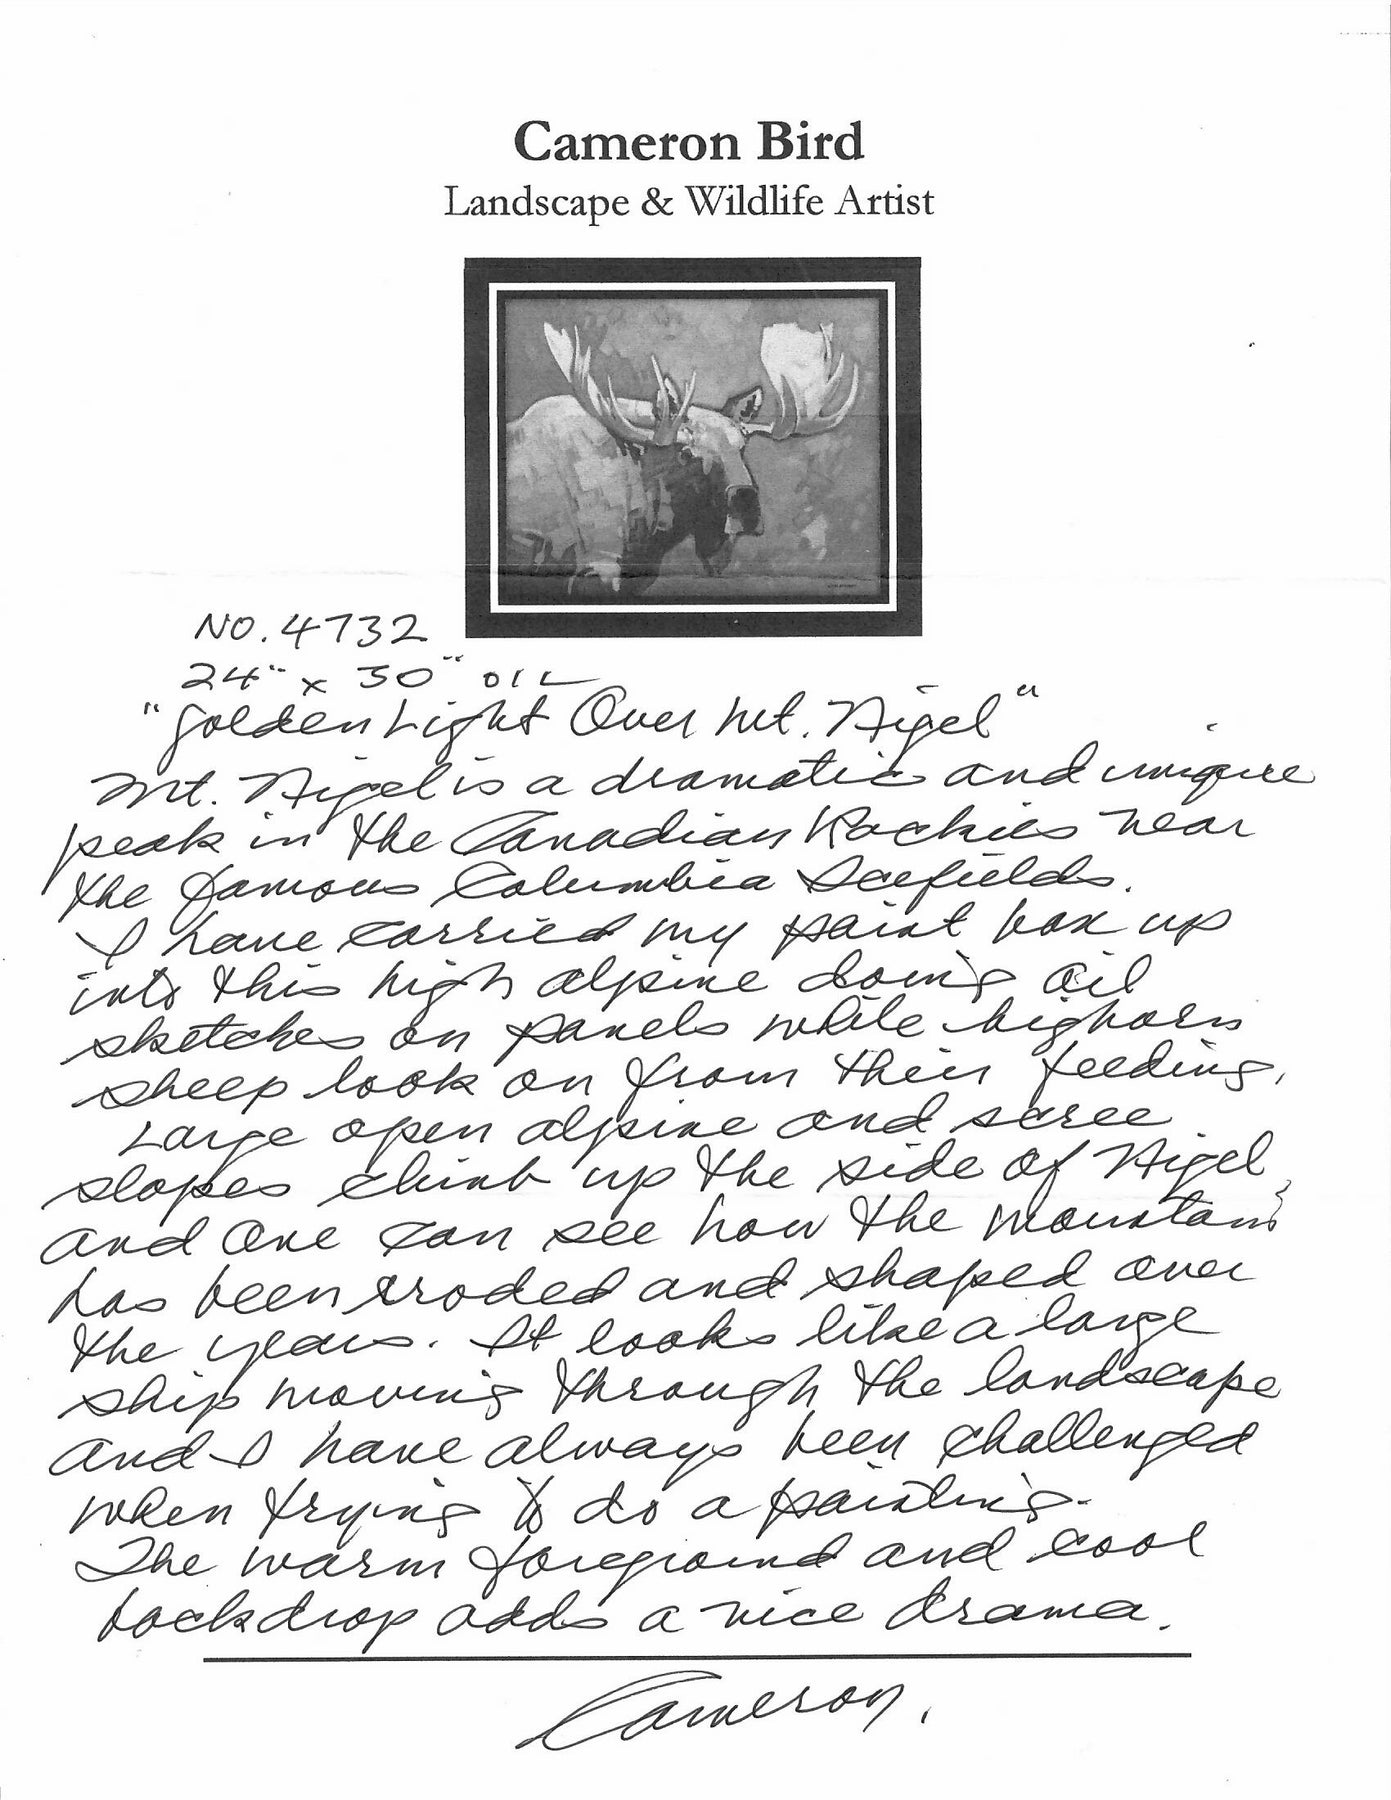 Cameron Bird
Landscape & Wildlife Artist
NO. 4732
24" x 30" OIL
"Golden Light Over Mt. Nigel"
Mt. Nigel is a dramatic and unique
peak in the Canadian Rockies near
the famous Columbia Icefields.
I have carried my paint box up
into this high alpine doing oil
sketches on panels while bighorn
sheep look on from their feeding.
Large open alpine and scree
slopes climb up the side of Nigel
and one can see how the mountain
has been eroded and shaped over
the years. It looks like a large
ship moving through the landscape
and I have always been challenged
when trying to do a painting.
The warm foreground and cool
backdrop adds a nice drama.
Cameron.